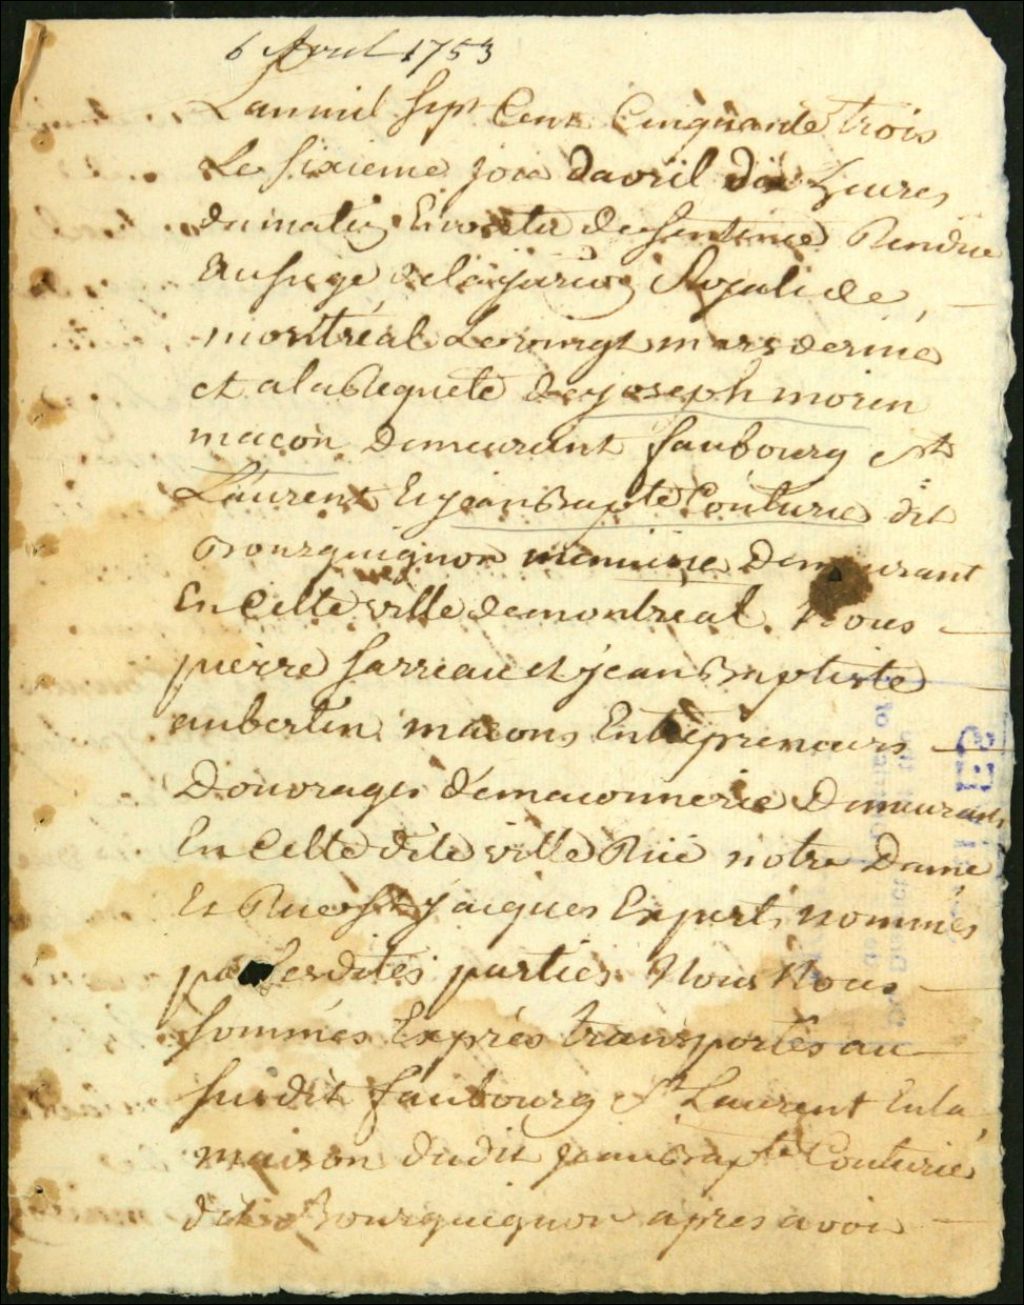 6 Avril 1753
Lan mil sept Cent Cinquante trois
Le sixieme jour davril dix heures
du matin En vertu de sentence Rendue
au siege de la juridon Royalle de
montréal Le vingt mars dernie
et a la Requete de joseph morin
macon demeurant faubourg st
Laurent Et jean Bapte Couturie dit
Bourguignon menuisie Demeurant
En Cette ville de montreal. Nous
pierre sarreau et jean Baptiste
aubertin macons Entrepreneurs
Douvrages de maconnerie Demeurants
En Cette dite ville Rüe notre Dame
Et Rue St jacques Experts nommés
par Lesdites parties Nous Nous
sommes Exprés transportés au
susdit faubourg St Laurent En la
maison dudit jean Bapte Couturie
dit Bourguignon apres avoir